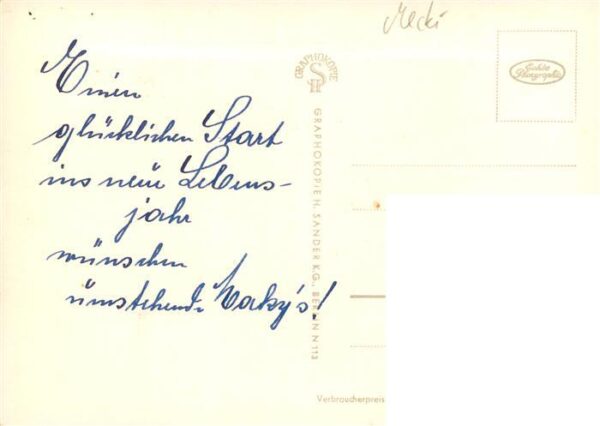 Einen
glücklichen Start
ins neue Lebens-
jahr
wünschen
umstehende Macky's!
Mecki
GRAPHOKOPIE
H S
GRAPHOKOPIE H. SANDER K.G., BERLIN N 113
Echte
Photographie
Verbraucherpreis